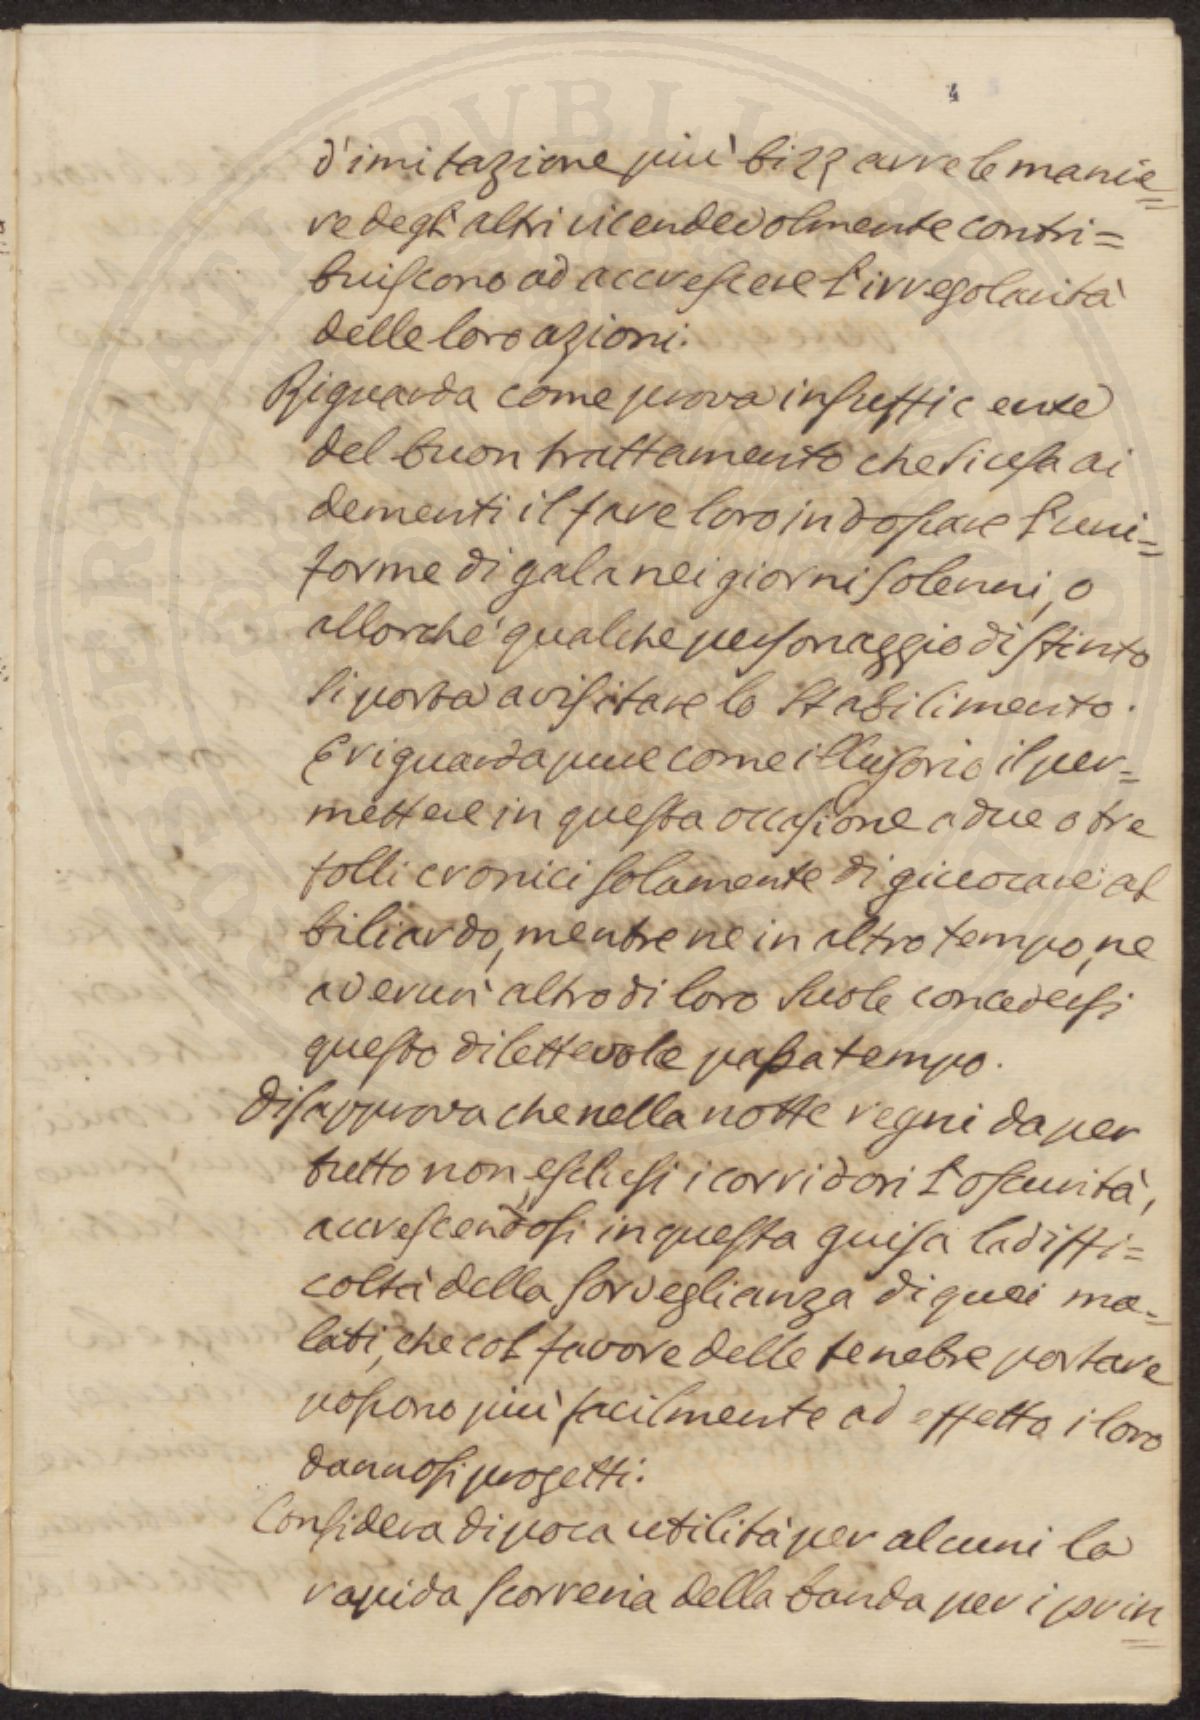 4
d'imitazione più bizzarre le manie=
re degli altri vicendevolmente contri=
buiscono ad accrescere l'irregolarità
delle loro azioni.
Riguarda come prova insufficente
del buon trattamento che si usa ai
dementi il fare loro indossare l'uni=
forme di gala nei giorni solenni, o
allorché qualche personaggio distinto
si porta a visitare lo stabilimento.
E riguarda pure come illusorio il per=
mettere in questa occasione a due o tre
folli cronici solamente di giuocare al
biliardo, mentre ne in altro tempo, ne
ad erun altro di loro suole concedersi
questo dilettevole passatempo.
Disapprova che nella notte regni da per
tutto non esclusi i corridori l'oscurità,
accrescendosi in questa guisa la diffi=
coltà della sorveglianza di quei ma=
lati, che col favore delle tenebre portare
possono più facilmente ad effetto i loro
dannosi progetti.
Considera di poca utilità per alcuni la
rapida scorreria della banda per i prin